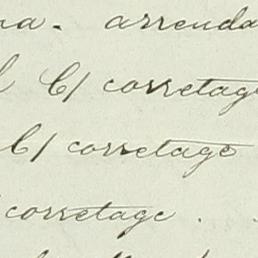 na. arrenda
C/ corretag
C/ corretage
corretage.